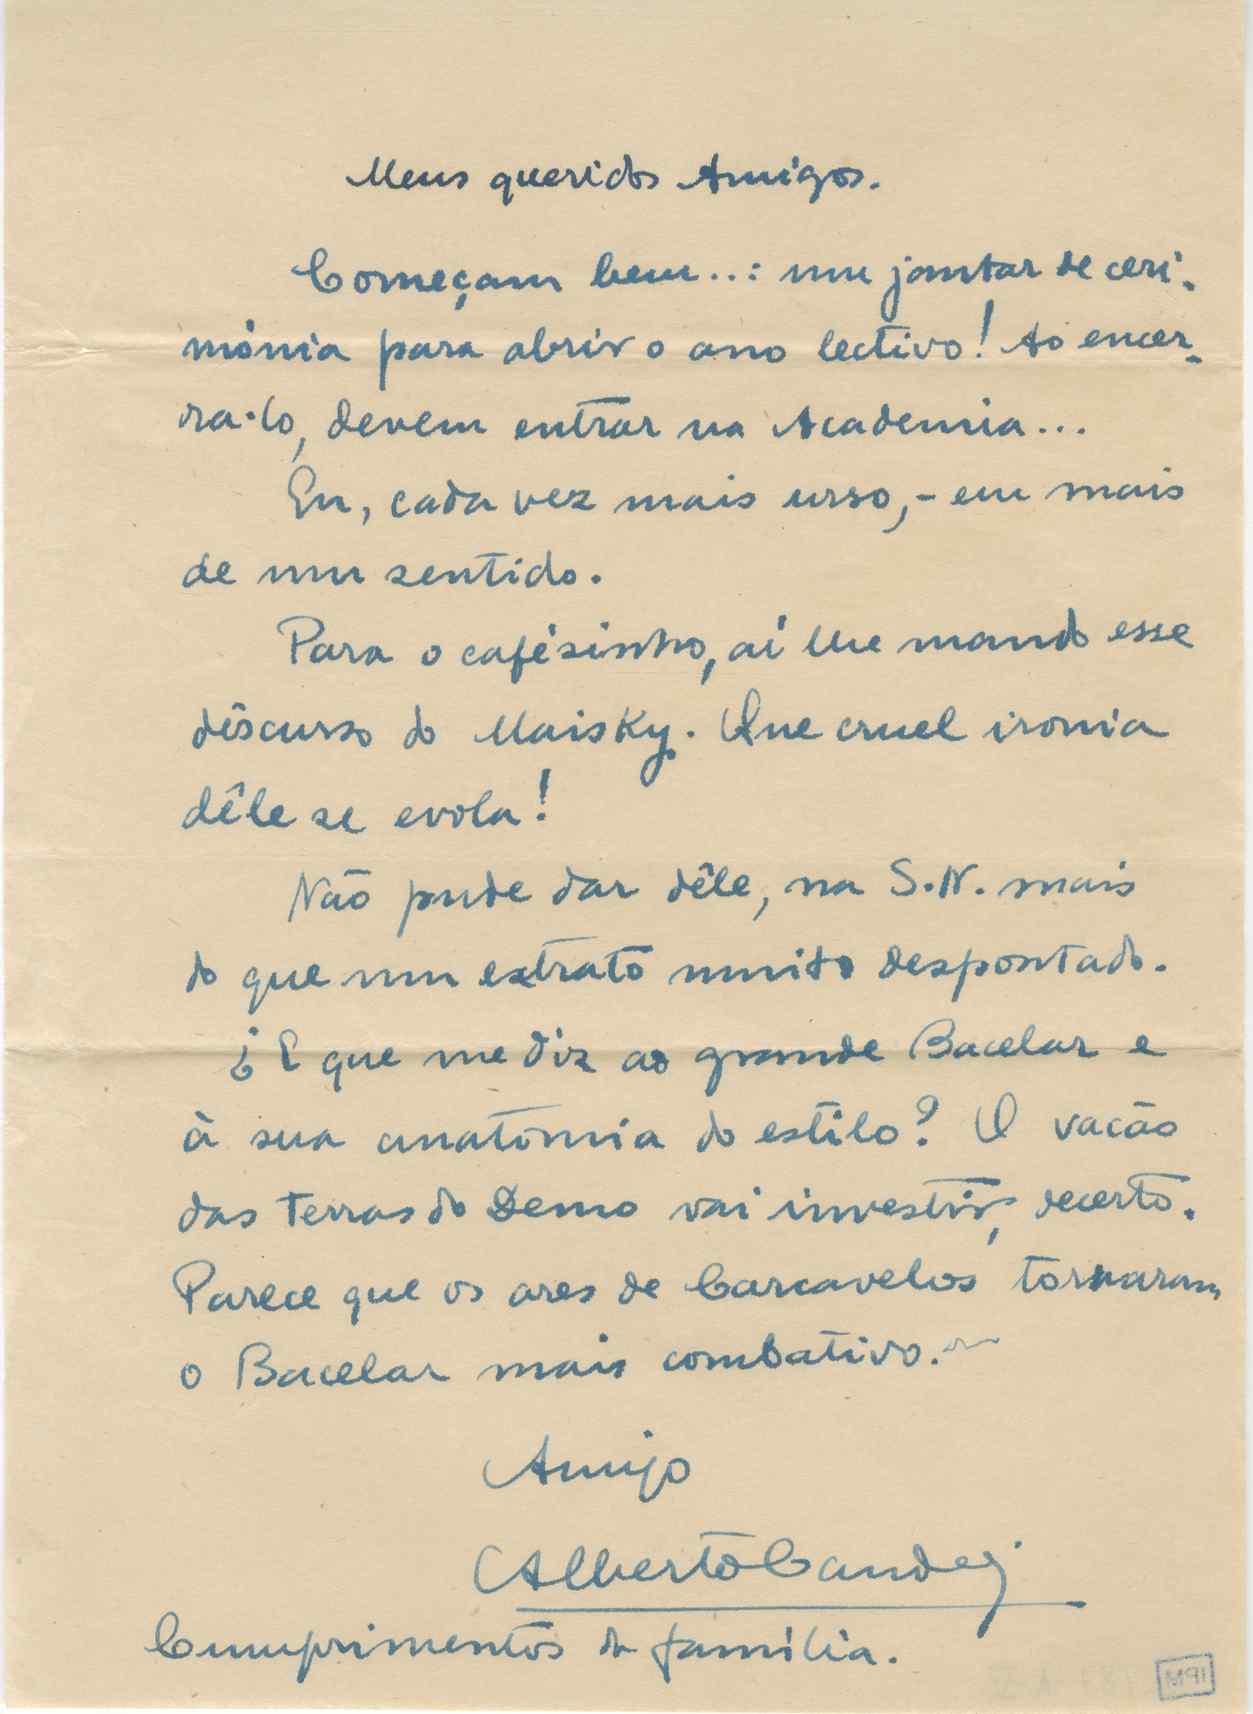 Meus queridos Amigos.
Começam bem..: um jantar de ceri-
mónia para abrir o ano lectivo! Ao encer-
ra-lo, devem entrar na Academia...
Eu, cada vez mais urso,- em mais
de um sentido.
Para o cafèsinho, aí lhe mando esse
discurso do Maisky. Que cruel ironia
dêle se evola!
Não pude dar dêle, na S.N. mais
do que um extrato muito despontado.
¿E que me diz ao grande Bacelar e
à sua anatomia do estilo? O vacão
das Terras do Demo vai investir, decerto.
Parece que os ares de Carcavelos tornaram
o Bacelar mais combativo.
Amigo
Alberto Candej
Cumprimentos da família.
IPM